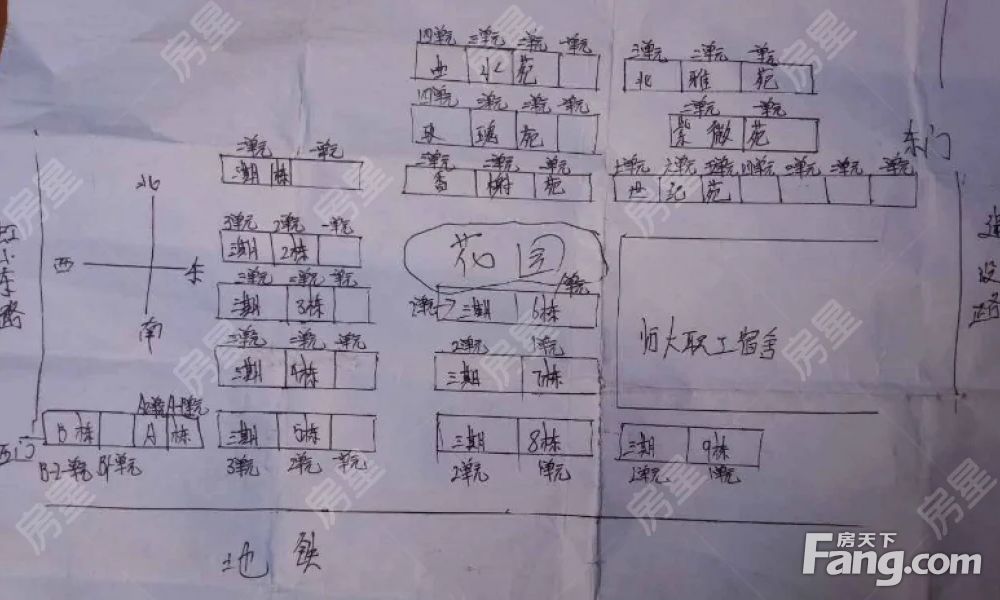 四单元 三单元 二单元 一单元
西 北 苑
三单元 二单元 一单元
北 雅 苑
四单元 三单元 二单元 一单元
玫 瑰 苑
二单元 一单元
紫 薇 苑
东门
二单元 一单元
三期 栋
三单元 二单元 一单元
香 榭 苑
七单元 六单元 五单元 四单元 三单元 二单元 一单元
世 纪 苑
北
西 东
南
3单元 2单元 一单元
三期 2栋
花园
三单元 二单元 一单元
三期 3栋
2单元 1单元
三期 6栋
师大职工宿舍
建设
三单元 二单元 一单元
三期 4栋
2单元 1单元
三期 7栋
A-2单元 A-1单元
B栋 A栋
三期 5栋
三期 8栋
三期 9栋
西门
B-2-单元 B1单元
3单元 2单元 一单元
2单元 1单元
2单元 1单元
地铁
房天下
Fang.com
房星